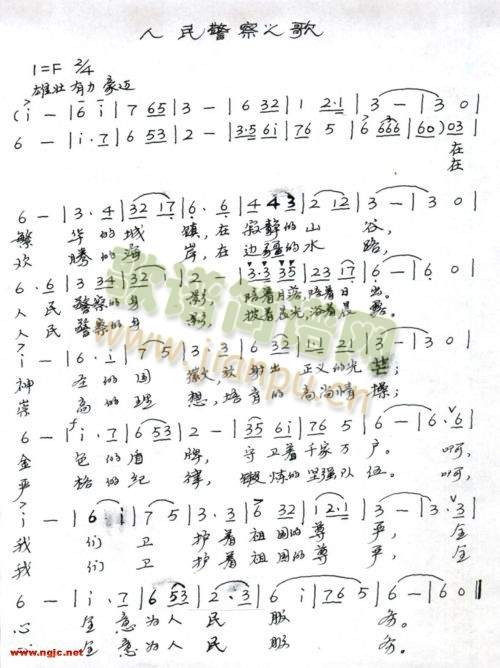 人民警察之歌
1=F 2/4
雄壮有力 豪迈
(i - | 6 i | 7 65 | 3 - | 6 32 | 1 2·1 | 3 - | 3 0 |
6 - | i·7 | 6 53 | 2 - | 3·5 6i | 76 5 | 6 666 | 60) 03 |
在
在
6 - | 3·4 | 32 17 | 6·6 | 4 43 | 2 12 | 3 - | 3 0 |
繁 华的城 镇,在寂静的山 谷,
欢 腾的海 岸,在边疆的水 路,
6·6 | 3 34 | 32 | 2 - | 3·3 35 | 23 17 | 6 - | 6 0 |
人民警察的身 影, 陪着月落,陪着日 出。
人民警察的身 影, 披着星光,浴着晨 露。
i - | 6·i | 7 5 | 3·3 | 6 32 | 1·1 21 | 3 - | 3 0 |
神 圣的国 徽,放射出 正义的光 芒;
崇 高的理 想,培育的高尚情 操;
6 - | i·7 | 6 53 | 2 - | 35 6i | 76 5 | 6 - | 6·6 |
金 色的盾 牌, 守卫着千家万 户。 啊,
严 格的纪 律, 锻炼的坚强队 伍。 啊,
i - | 6 i | 7 5 | 3·3 | 6 32 | 1 2·1 | 3 - | 3·3 |
我 们 卫 护着祖国的尊 严, 全
我 们 卫 护着祖国的尊 严, 全
6 - | i·7 | 6 53 | 2·3 | 6 i | 76 5 | 6 - | 6 0 ‖
心 全 意为人 民 服 务。
心 全 意为人 民 服 务。
歌谱简谱网
www.jianpu.cn
www.ngjc.net